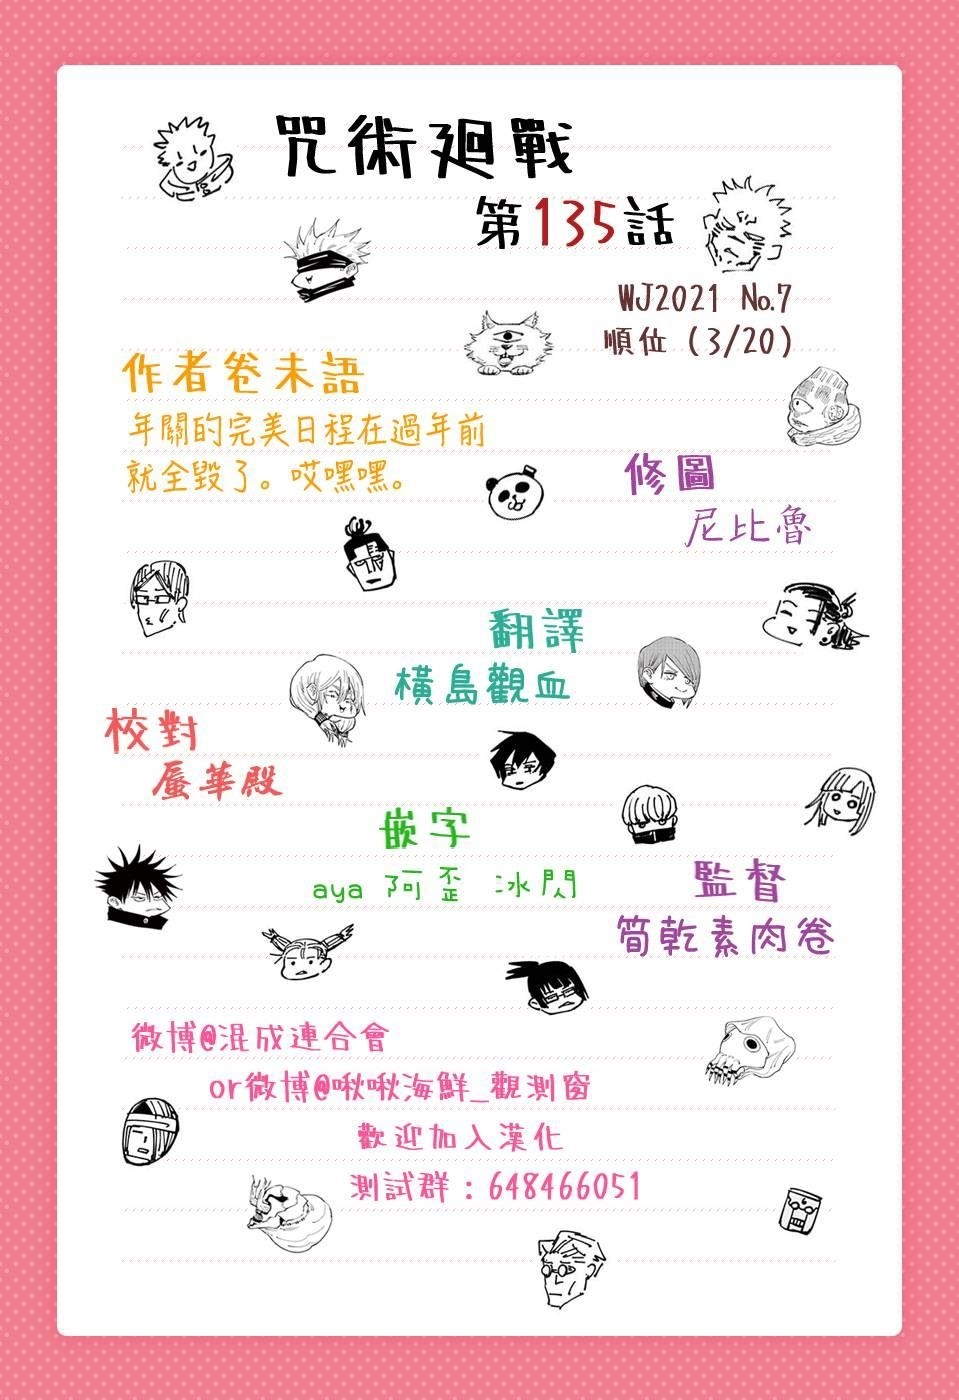 咒術廻戰
第135話
WJ2021 No.7
順位 (3/20)
作者卷末語
年關的完美日程在過年前
就全毀了。哎嘿嘿。
修圖
尼比魯
翻譯
橫島觀血
校對
蜃華殿
嵌字
aya 阿歪 冰閃
監督
筒乾素肉卷
微博@混成連合會
or微博@啾啾海鮮_觀測窗
歡迎加入漢化
測試群：648466051